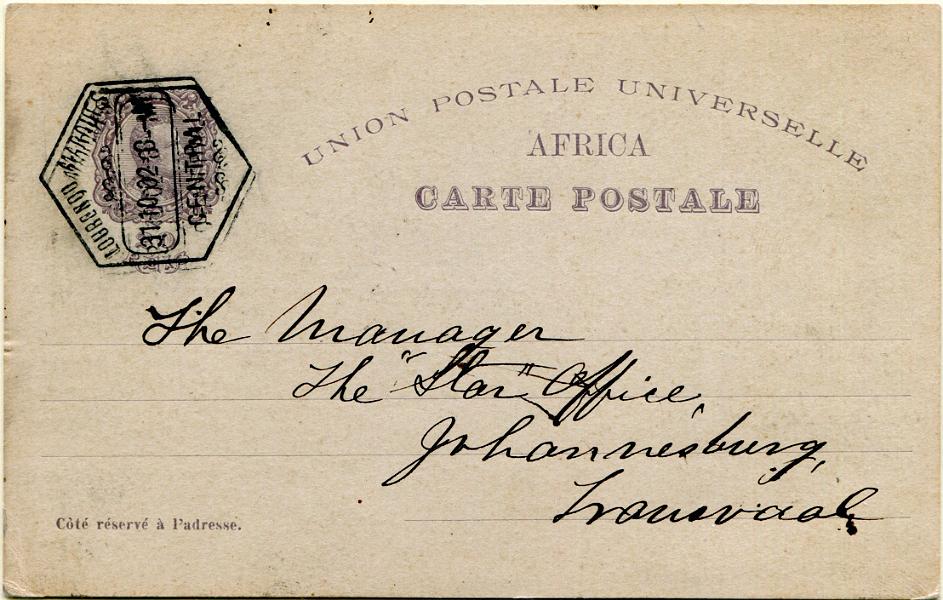 UNION POSTALE UNIVERSELLE
AFRICA
CARTE POSTALE
LOURENÇO MARQUES
CENTRAL
The Manager
The "Star" Office,
Johannesburg,
Transvaal
Côté réservé à l'adresse.